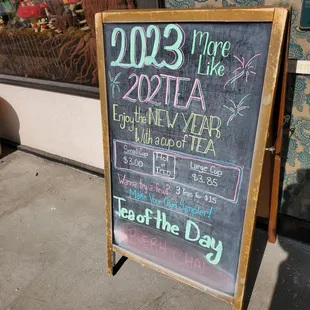 2023 More
Like
202TEA
Enjoy the NEW YEAR
With a cup of TEA
Small Cup
$3.00
Hot
or
Iced
Large Cup
$3.85
Wanna try a few? 3 Tins for $15
Make Your Own Sampler!
Tea of the Day
CHAI